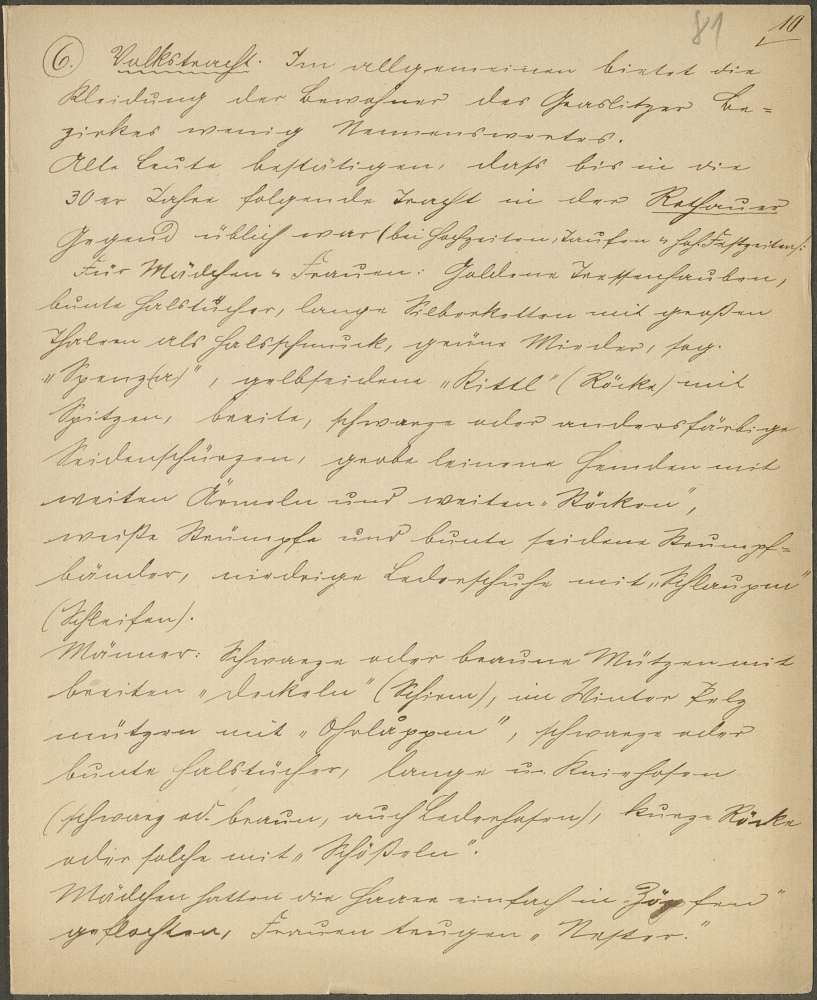 81 10
6. Volkstracht. Im allgemeinen bietet die
Kleidung der Bewohner des Graslitzer Be=
zirkes wenig Nennenswertes.
Alte Leute bestätigen, daß bis in die
30er Jahre folgende Tracht in der Rothauer
Gegend üblich war (bei Hochzeiten, Taufen u. hoh. Festzeiten):
Für Mädchen u. Frauen: Goldene Tressenhauben,
bunte Halstücher, lange Silberketten mit großen
Thalern als Halsschmuck, grüne Mieder, sog.
„Spenz(a)", gelbseidene „Kittl" (Röcke) mit
Spitzen, breite, schwarze oder andersfärbige
Seidenschürzen, grobe leinene Hemden mit
weiten Ärmeln und weiten „Stöcken",
weiße Strümpfe und bunte seidene Strumpf=
bänder, niedrige Lederschuhe mit „Schlaupen"
(Schleifen).
Männer: Schwarze oder braune Mützen mit
breiten „Deckeln" (Schirm), im Winter Pelz
mützen mit „Ohrlappen", schwarze oder
bunte Halstücher, lange u. Kniehosen
(schwarz od. braun, auch Lederhosen), kurze Röcke
oder solche mit „Schößeln".
Mädchen hatten die Haare einfach in „Zöpfen"
geflochten, Frauen trugen „Nester."